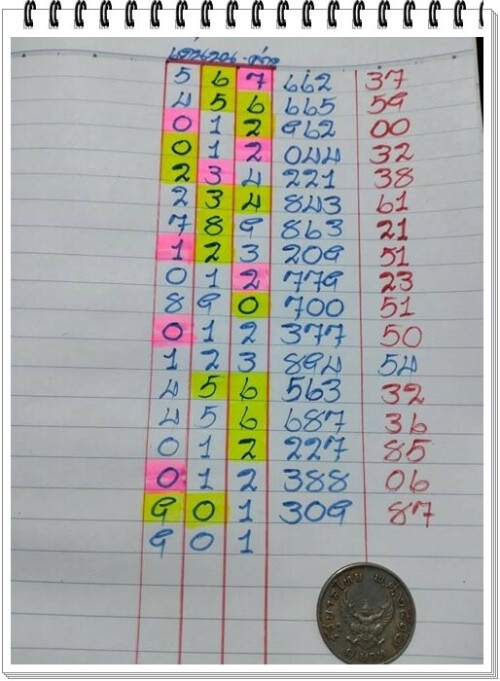 5 6 7 662 37
4 5 6 665 59
0 1 2 962 00
0 1 2 044 32
2 3 4 221 38
2 3 4 843 61
7 8 9 863 21
1 2 3 209 51
0 1 2 779 23
8 9 0 700 51
0 1 2 377 50
1 2 3 894 54
4 5 6 563 32
4 5 6 687 36
0 1 2 227 85
0 1 2 388 06
9 0 1 309 87
9 0 1